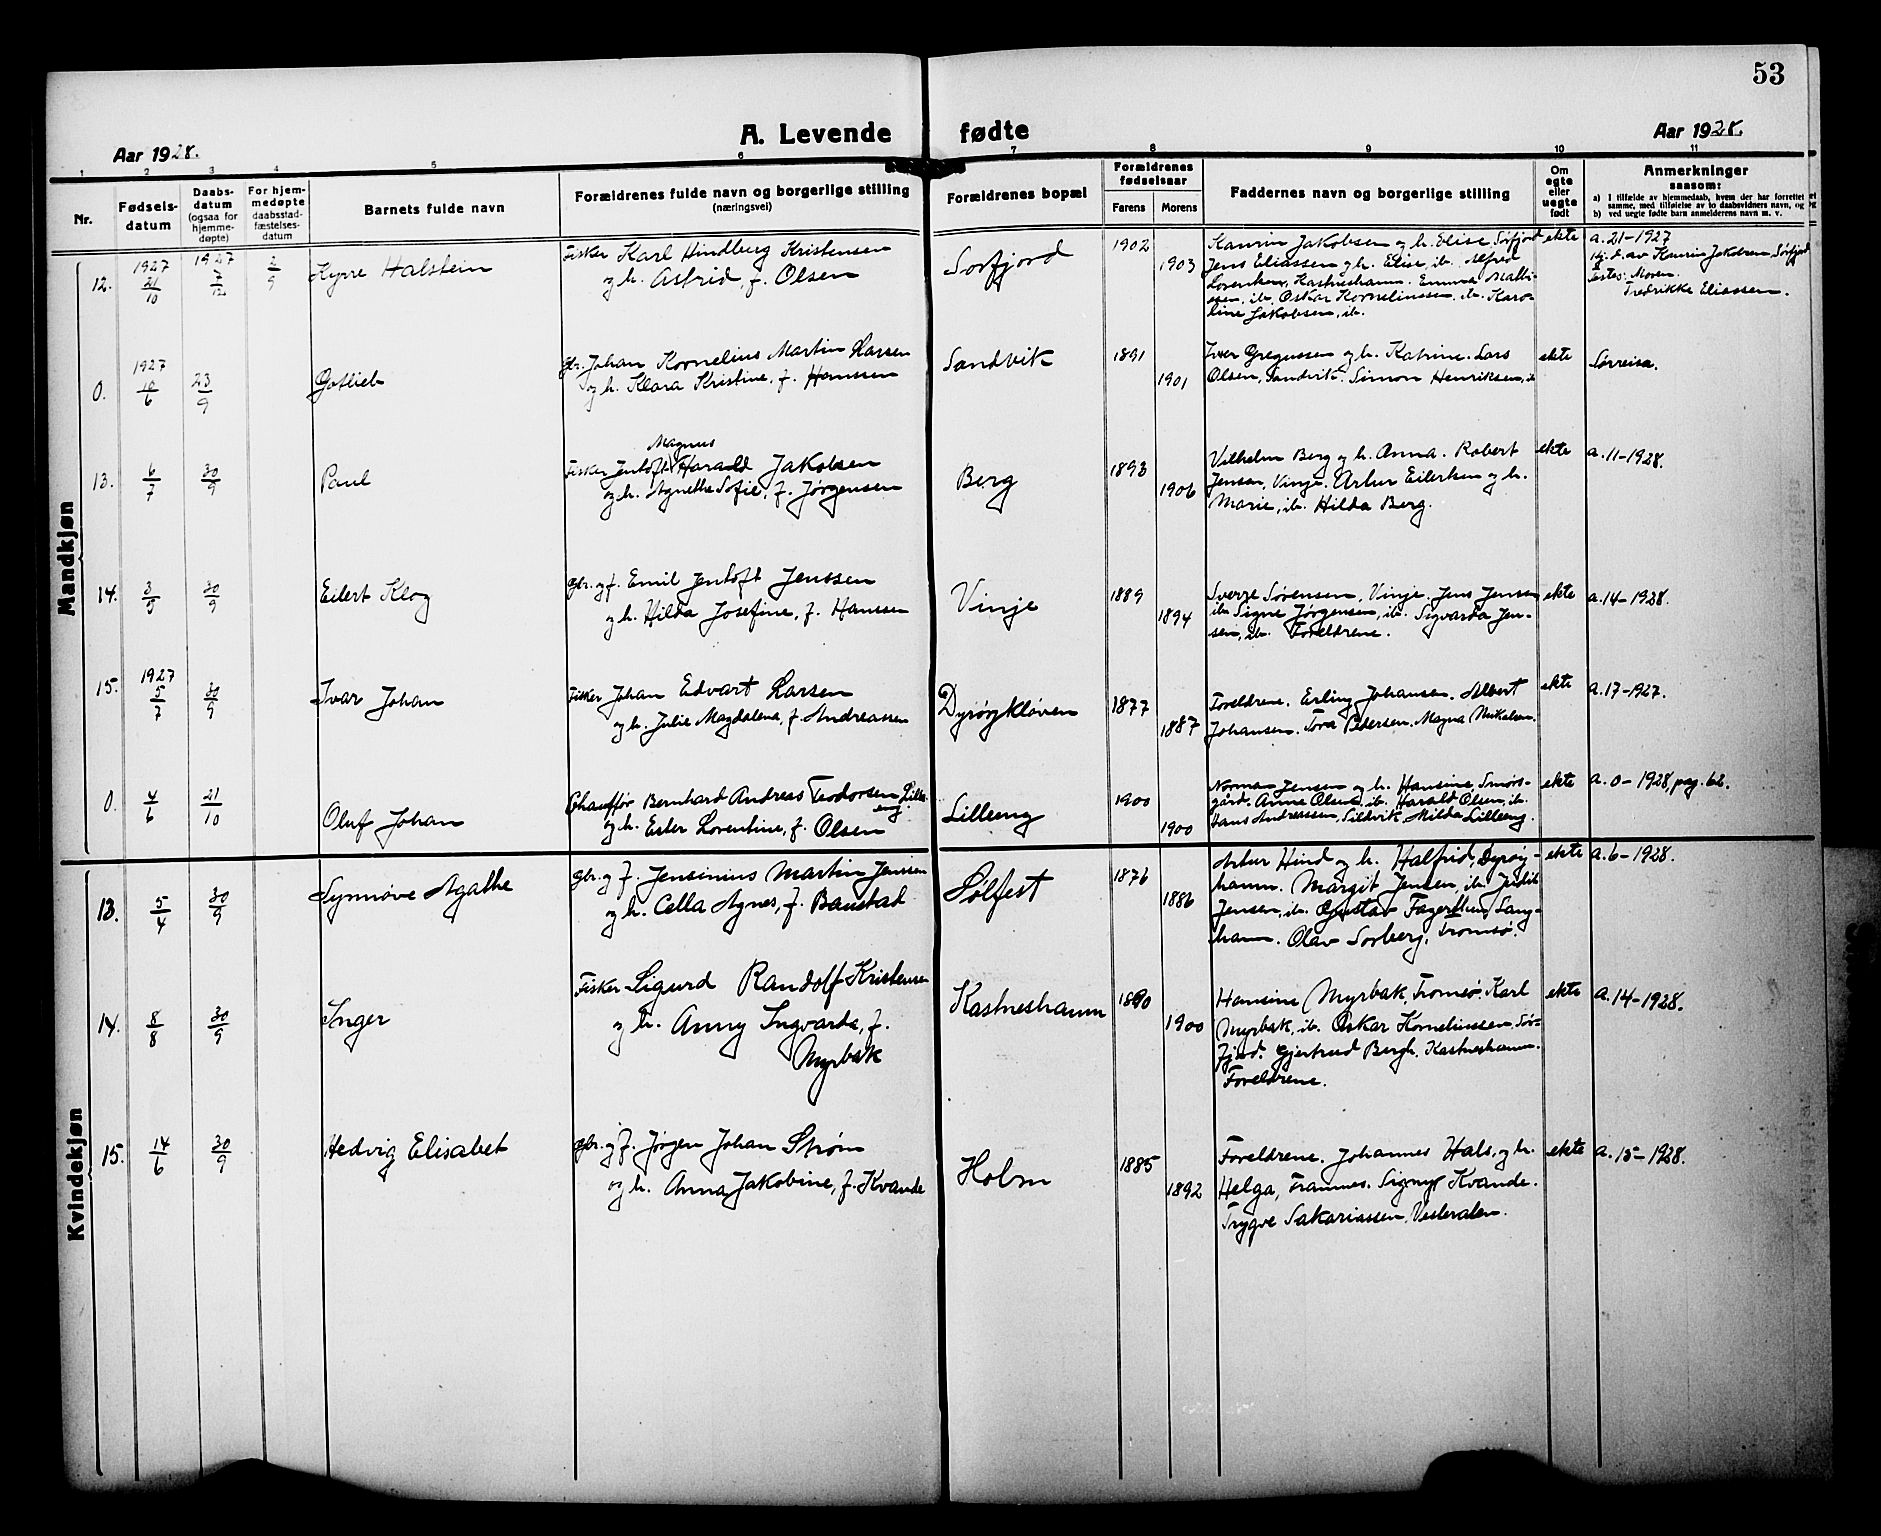 53
A. Levende fødte
Aar 1928.
Aar 1928.
1 2 3 4 5 6 7 8 9 10 11
Nr.
Fødsels-
datum
Daabs-
datum
(ogsaa for
hjemme-
døpte)
For hjem-
medøpte
daabsstad-
fæstelses-
datum
Barnets fulde navn
Forældrenes fulde navn og borgerlige stilling
(næringsvei)
Forældrenes bopæl
Forældrenes
fødselsaar
Farens
Morens
Faddernes navn og borgerlige stilling
Om
egte
eller
uegte
født
Anmerkninger
saasom:
a) I tilfælde av hjemmedaab, hvem der har forrettet
samme, med tilføielse av to daabsvidners navn, og
b) ved uegte fødte barn anmelderens navn m. v.
Mandkjøn
12.
1927
21/10
1927
7/12
2/9
Kyrre Halstein
Fisker Karl Hindberg Kristensen
og h. Astrid f. Olsen
Sørfjord
1902
1903
Jakobsen og h. Elise Sørfjord
Jens Eliassen og h. Elise, ib. Alfred
Lorentsen, Kastneshamn. Emma
ib. Oskar Kornelinssen, ib. Karo-
line Jakobsen, ib.
ekte
a. 21-1927
Hj.d. av Jakobsen Sørfjord
Moren
Fredrikke Eliassen.
0.
1927
10/6
23/9
Gotlieb
gbr. Johan Kornelius Martin Larsen
og h. Klara Kristine, f. Hanssen
Sandvik
1891
1901
Iver Gregussen og h. Katrine. Lars
Olsen, Sandvik. Simon Henriksen, ib
ekte
Sørreisa.
13.
6/7
30/9
Paul
Magnus
Fisker Jentoft Harald Jakobsen
og h. Agnethe Sofie, f. Jørgensen
Berg
1893
1906
Vilhelm Berg og h. Anna. Robert
Jensen, Vinje. Artur Eilertsen og h.
Marie, ib. Hilda Berg.
ekte
a. 11-1928.
14.
3/5
30/9
Eilert Klog
gbr. og f. Emil Jentoft Jenssen
og h. Hilda Josefine, f. Hanssen
Vinje
1889
1894
Sverre Sørensen, Vinje. Jens Jensen
ib. Signe Jørgensen, ib. Sigvarda Jen-
sen, ib. Foreldrene.
ekte
a. 14-1928.
15.
1927
5/7
30/9
Ivar Johan
Fisker Johan Edvart Larsen
og h. Julie Magdalena, f. Andreassen
Dyrøykløven
1877
1887
Foreldrene. Erling Johansen. Albert
Johansen. Tora Pedersen. Magna Mikalsen.
ekte
a. 17-1927.
0.
4/6
21/10
Oluf Johan
Chauffør Bernhard Andreas Teodorsen Lille-
eng
og h. Ester Lorentine, f. Olsen
Lilleeng
1900
1900
Norman Jensen og h. Hansine Smørs-
gård. Anna Olsen, ib. Harald Olsen, ib.
Hans Andreassen, Sildvik. Milda Lilleeng.
ekte
a. 0-1928, pag. 62.
Kvindekjøn
13.
5/4
30/9
Synnøve Agathe
gbr. og f. Jensinius Martin Jenssen
og h. Cella Agnes, f. Baustad
Sølfest
1876
1886
Artur Hind og h. Halfrid, Dyrøy-
hamn. Margit Jensen, ib. Judit
Jensen, ib. Gustav Lang-
hamn. Olav Sørberg, Tromsø.
ekte
a. 6-1928.
14.
8/8
30/9
Inger
Fisker Sigurd Randolf Kristensen
og h. Anny Ingvarda, f.
Myrbak
Kastneshamn
1890
1900
Hansine Myrbak, Tromsø. Karl
Myrbak, ib. Oskar Kornelinssen, Sør-
fjord. Gjertrud Bergh, Kastneshamn.
Foreldrene.
ekte
a. 14-1928.
15.
14/6
30/9
Hedvig Elisabet
gbr. og f. Jørgen Johan Strøm
og h. Anna Jakobine, f. Kvande
Holm
1885
1892
Foreldrene. Johannes Hals, og h.
Helga, Framnes. Signy Kvande.
Trygve Sakariassen, Vesterålen.
ekte
a. 15-1928.